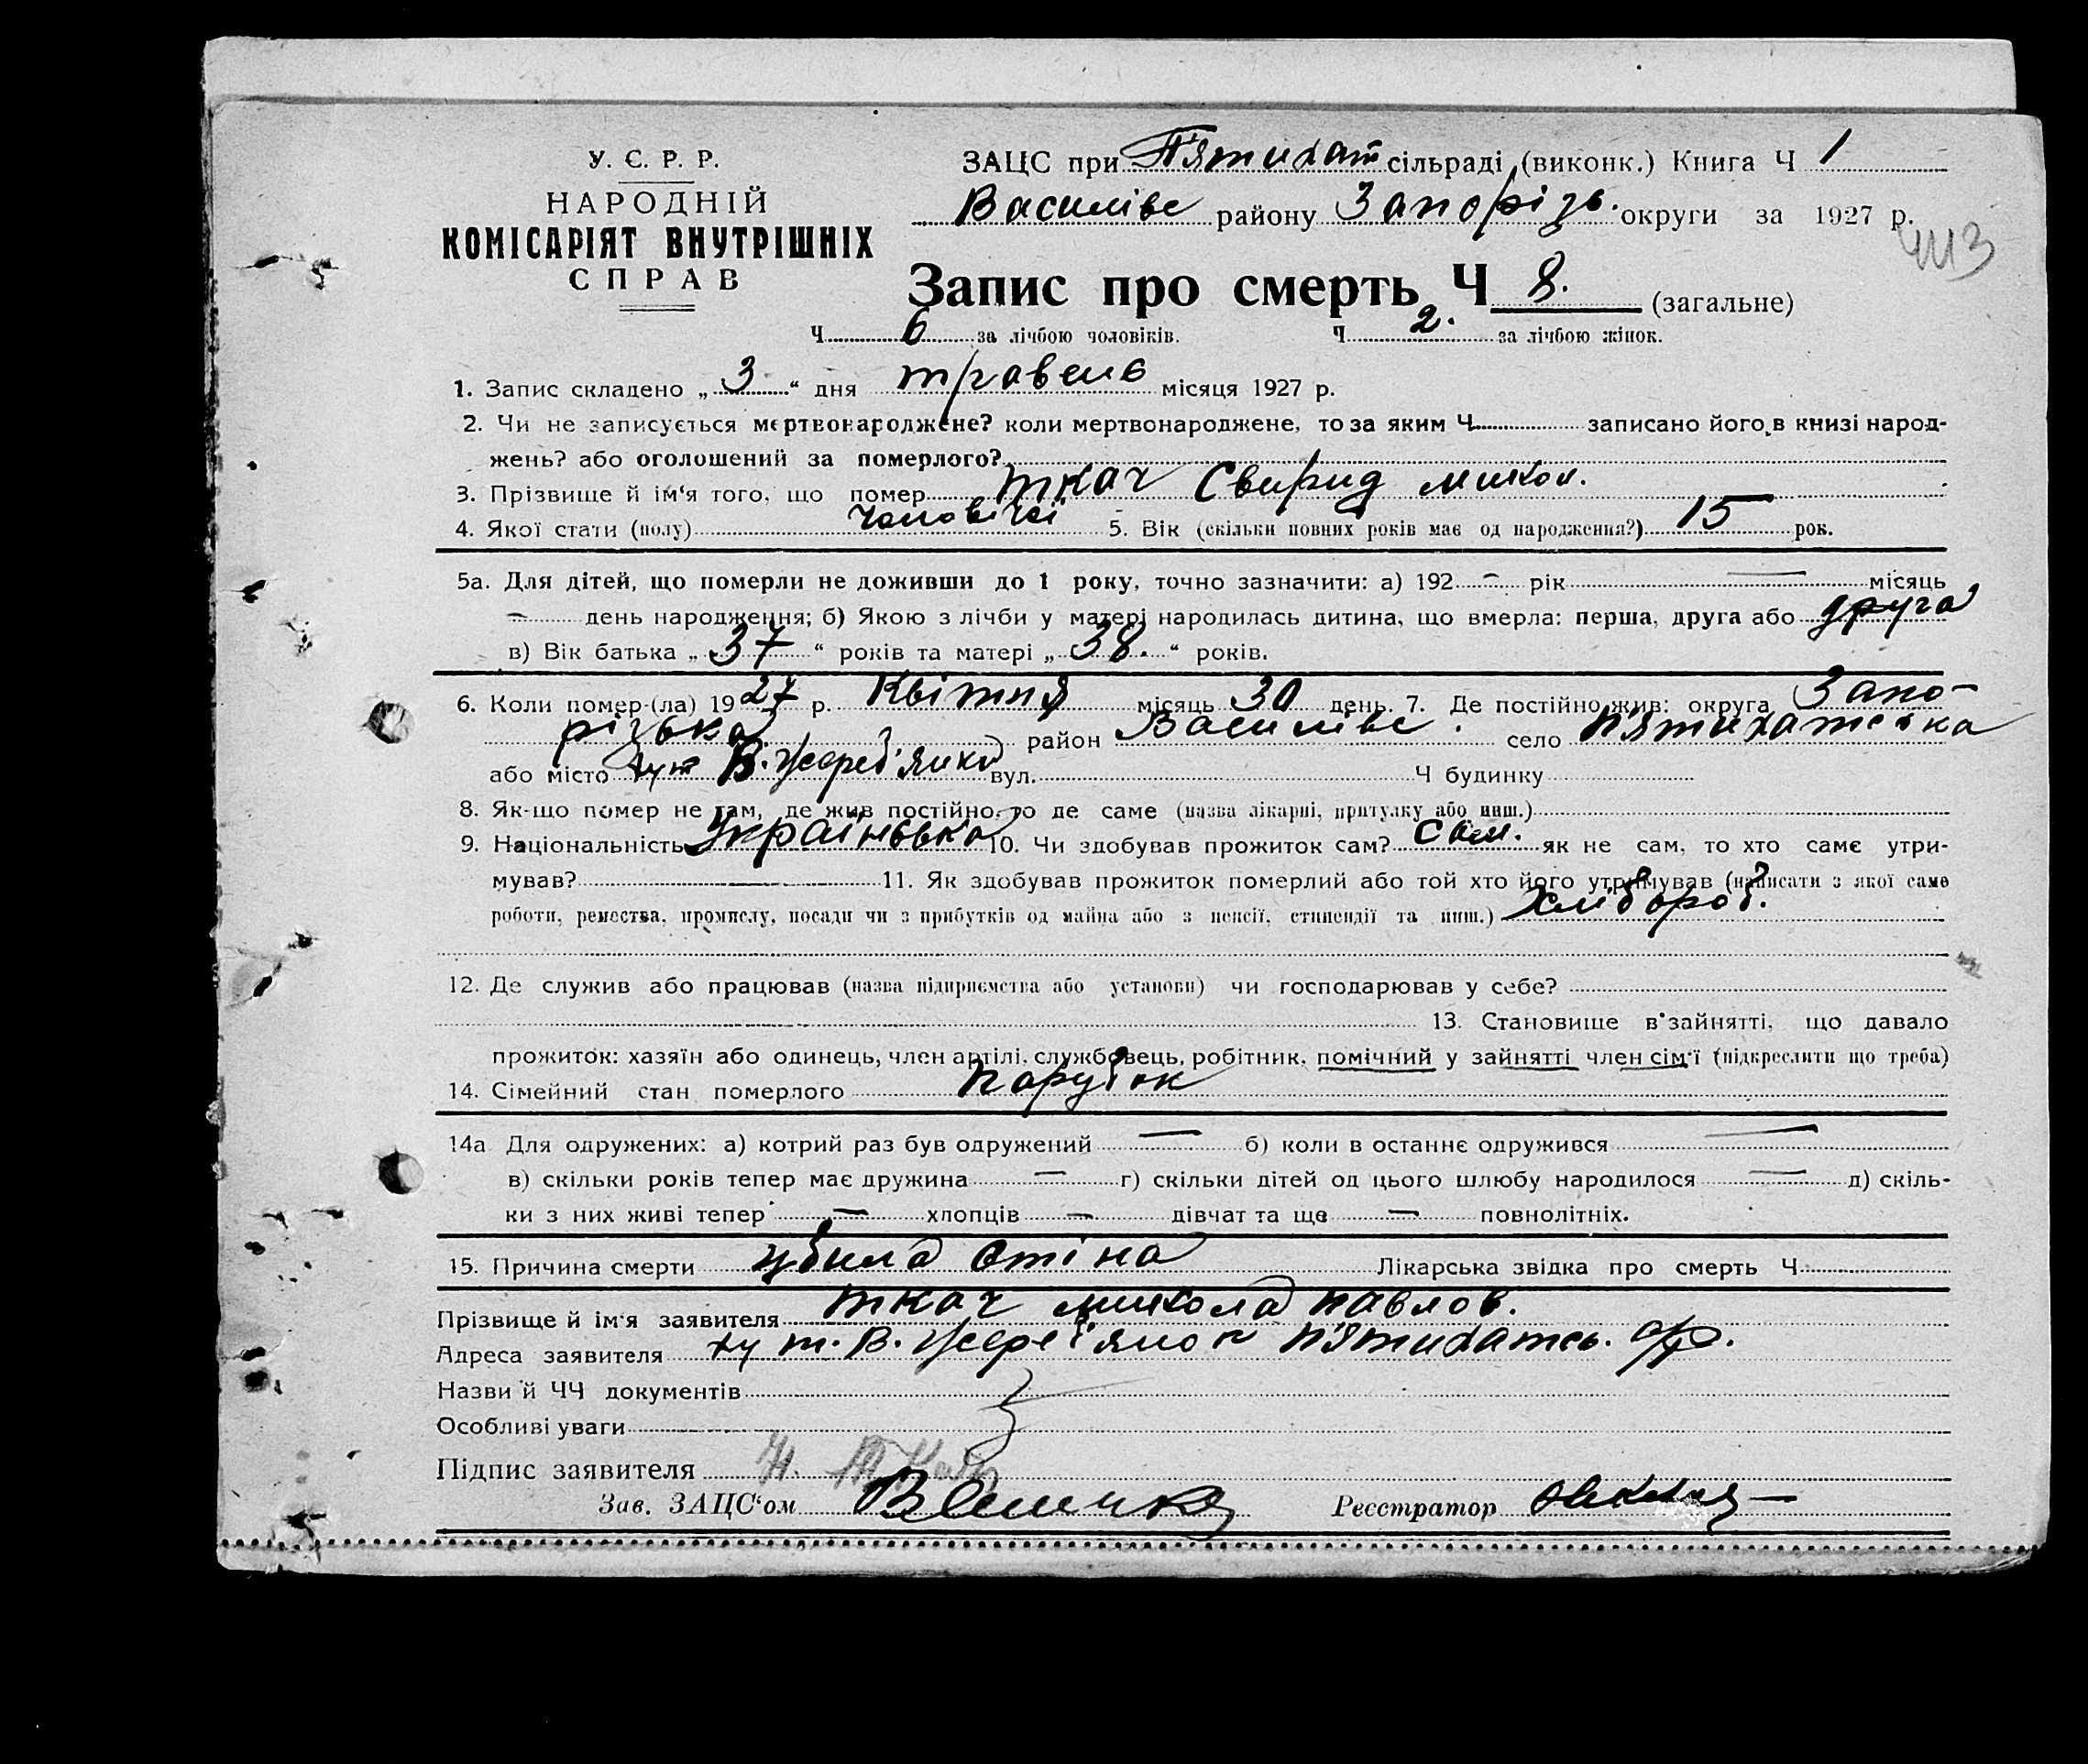 У. С. Р. Р.
НАРОДНІЙ
КОМІСАРІЯТ ВНУТРІШНІХ
СПРАВ
ЗАЦС при П'ятихат сільраді (виконк.) Книга Ч 1
Василівс району Запорізь. округи за 1927 р.
Запис про смерть Ч 8. (загальне)
Ч 6 за лічбою чоловіків. Ч 2. за лічбою жінок.
1. Запис складено „ 3 “ дня травень місяця 1927 р.
2. Чи не записується мертвонароджене? коли мертвонароджене, то за яким Ч записано його в книзі народ-
жень? або оголошений за померлого?
3. Прізвище й ім'я того, що помер Ткач Свирид Микол.
4. Якої стати (полу) чоловічої 5. Вік (скільки повних років має од народження?) 15 рок.
5а. Для дітей, що померли не доживши до 1 року, точно зазначити: а) 192 - рік — місяць
- день народження; б) Якою з лічби у матері народилась дитина, що вмерла: перша, друга або друга
в) Вік батька „ 37 “ років та матері „ 38. “ років.
6. Коли помер (ла) 1927 р. Квітня місяць 30 день. 7. Де постійно жив: округа Запо-
різька район Василівс. село П'ятихатська
або місто хут В. Жереб'янки вул. Ч будинку
8. Як-що помер не там, де жив постійно, то де саме (назва лікарні, притулку або инш.)
9. Національність Українська 10. Чи здобував прожиток сам? сам. як не сам, то хто саме утри-
мував? 11. Як здобував прожиток померлий або той хто його утримував (написати з якої саме
роботи, ремества, промислу, посади чи з прибутків од майна або з пенсії, стипендії та инш.) Хлібороб.
12. Де служив або працював (назва підприємства або установи) чи господарював у себе?
13. Становище в'зайнятті, що давало
прожиток: хазяїн або одинець, член артілі, службовець, робітник, помічний у зайнятті член сім'ї (підкреслити що треба)
14. Сімейний стан померлого парубок
14а Для одружених: а) котрий раз був одружений — б) коли в останнє одружився —
в) скільки років тепер має дружина — г) скільки дітей од цього шлюбу народилося — д) скіль-
ки з них живі тепер — хлопців — дівчат та ще — повнолітніх.
15. Причина смерти убила стіна Лікарська звідка про смерть Ч
Прізвище й ім'я заявителя Ткач Микола Павлов.
Адреса заявителя хут. В. Жереб'янок П'ятихатсь. с/р.
Назви й ЧЧ документів
Особливі уваги
Підпис заявителя Н. Ткач
Зав. ЗАЦС'ом Реєстратор